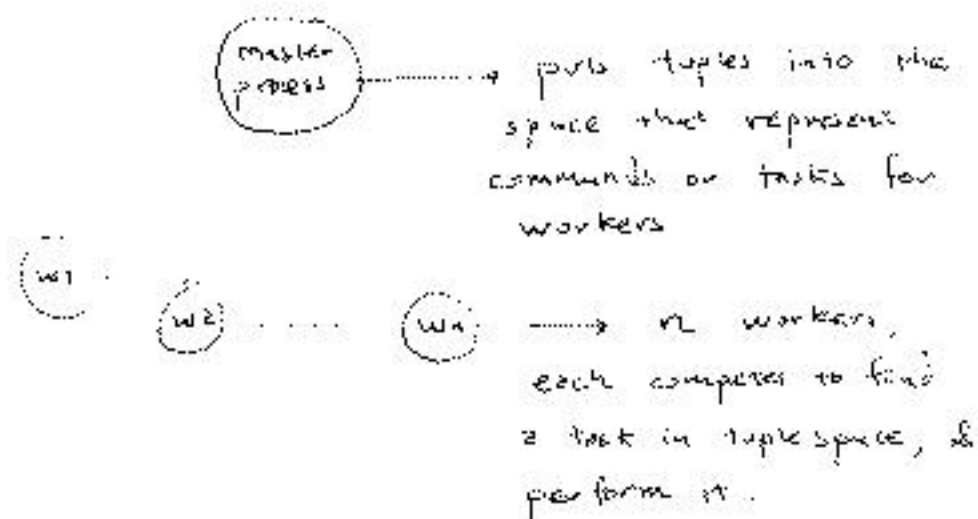 master
process
puts tuples into the
space that represent
commands or tasks for
workers
w1
w2
wn
n workers,
each competes to find
a task in tuple space, &
perform it.